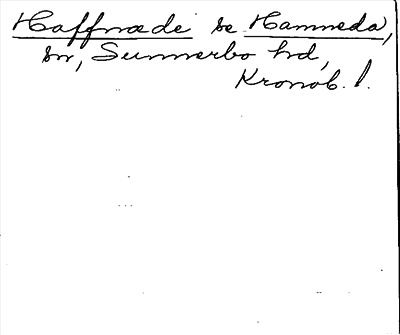 Haffnæde se Hamneda,
sn, Sunnerbo hd,
Kronob. l.